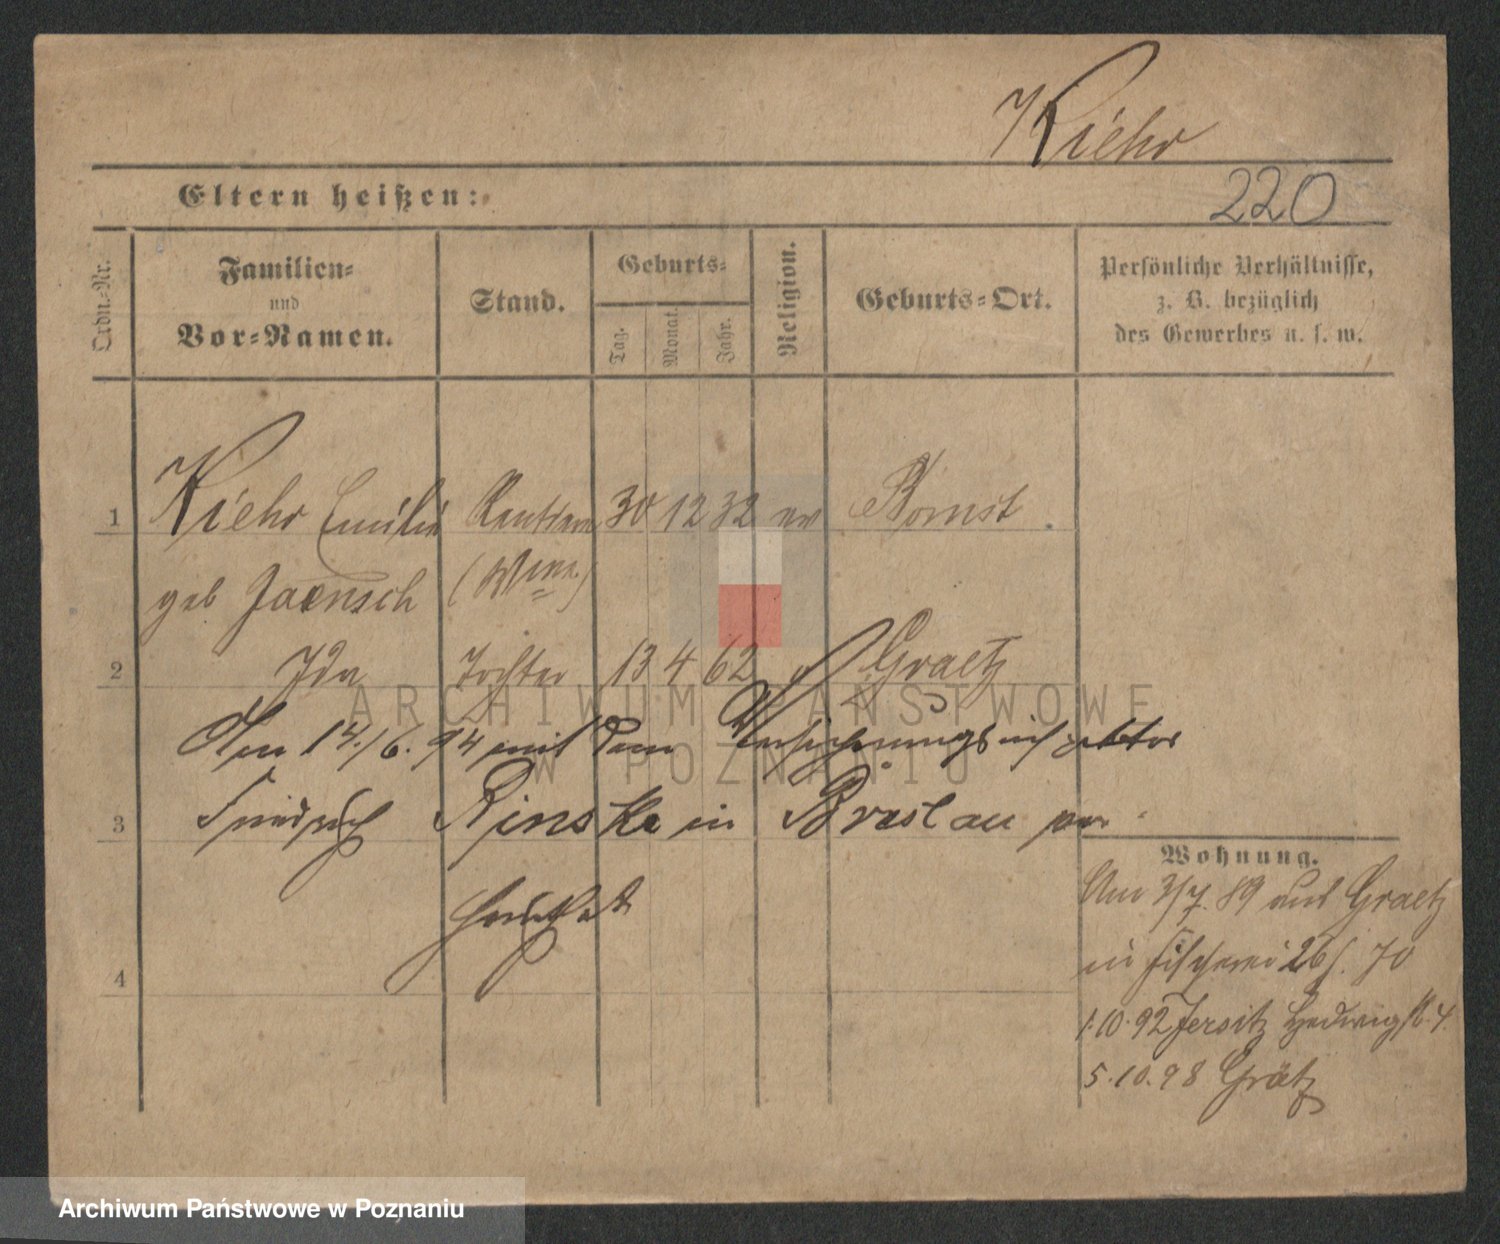 Kiehr
Eltern heißen:
220
Ordn.-Nr.
Familien-
und
Vor-Namen.
Stand.
Geburts-
Tag.
Monat.
Jahr.
Religion.
Geburts-Ort.
Persönliche Verhältnisse,
z. B. bezüglich
des Gewerbes u. s. w.
1 Kiehr Emilie 30 12 32 ev Bomst.
geb Jaensch (Wwe.)
2 Ida Tochter 13 4 62 Graetz
Am 14./6. 94 mit dem Versicherungsinspektor
3 Friedrich Rinske in Breslau ver
heirathet
4
Wohnung.
Am 3/7. 89 aus Graetz
in Fischerei 26 70
1.10.92 Jersitz Hedwigstr. 4.
5.10.98 Grätz
ARCHIWUM PAŃSTWOWE
W POZNANIU
Archiwum Państwowe w Poznaniu